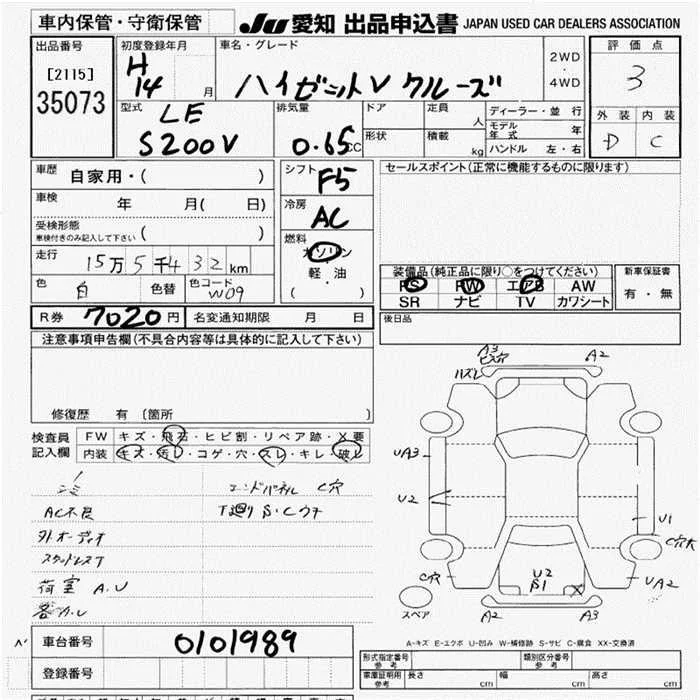 車内保管・守衛保管
JU 愛知 出品申込書 JAPAN USED CAR DEALERS ASSOCIATION
出品番号
[2115]
35073
初度登録年月
H
14 月
車名・グレード
ハイゼットV クルーズ
2WD
・
4WD
評価点
3
外装 内装
D C
型式
LE
S200V
排気量
0.65CC
ドア
形状
定員
人
積載
kg
ディーラー・並行
モデル年式 年
ハンドル 左・右
車歴 自家用・( )
車検 年 月( 日)
受検形態
車検付きのみ記入して下さい ( )
走行 15万5千432km
色 白 色替 色コード W09
シフト
F5
冷房
AC
燃料
ガソリン
・
軽・油
( )
セールスポイント(正常に機能するものに限ります)
装備品(純正品に限り○をつけてください)
PS PW エアB AW
SR ナビ TV カワシート
新車保証書
有・無
R券 7020円 名変通知期限 月 日
後日品
注意事項申告欄(不具合内容等は具体的に記入して下さい)
修復歴 有 〔箇所 〕
検査員
記入欄
FW キズ・飛石・ヒビ割・リペア跡・X要
内装 キズ・汚し・コゲ・穴・スレ・キレ・破し
シミ エンドパネル C穴
AC不良 下廻りS・Cウチ
外オーディオ
スタッドレス7
荷室 A.U
A.U
A3
ビス穴
ハズレ
A2
UA3
U2
U1
C穴大
C穴
U2
B1
X
UA2
スペア
A2
A3
A-キズ E-エクボ U-凹み W-補修跡 S-サビ C-腐食 XX-交換済
車台番号 0101989
登録番号
形式指定番号
参考
類別区分番号
参考
車庫証明用
参考
長さ cm 幅 cm 高さ cm